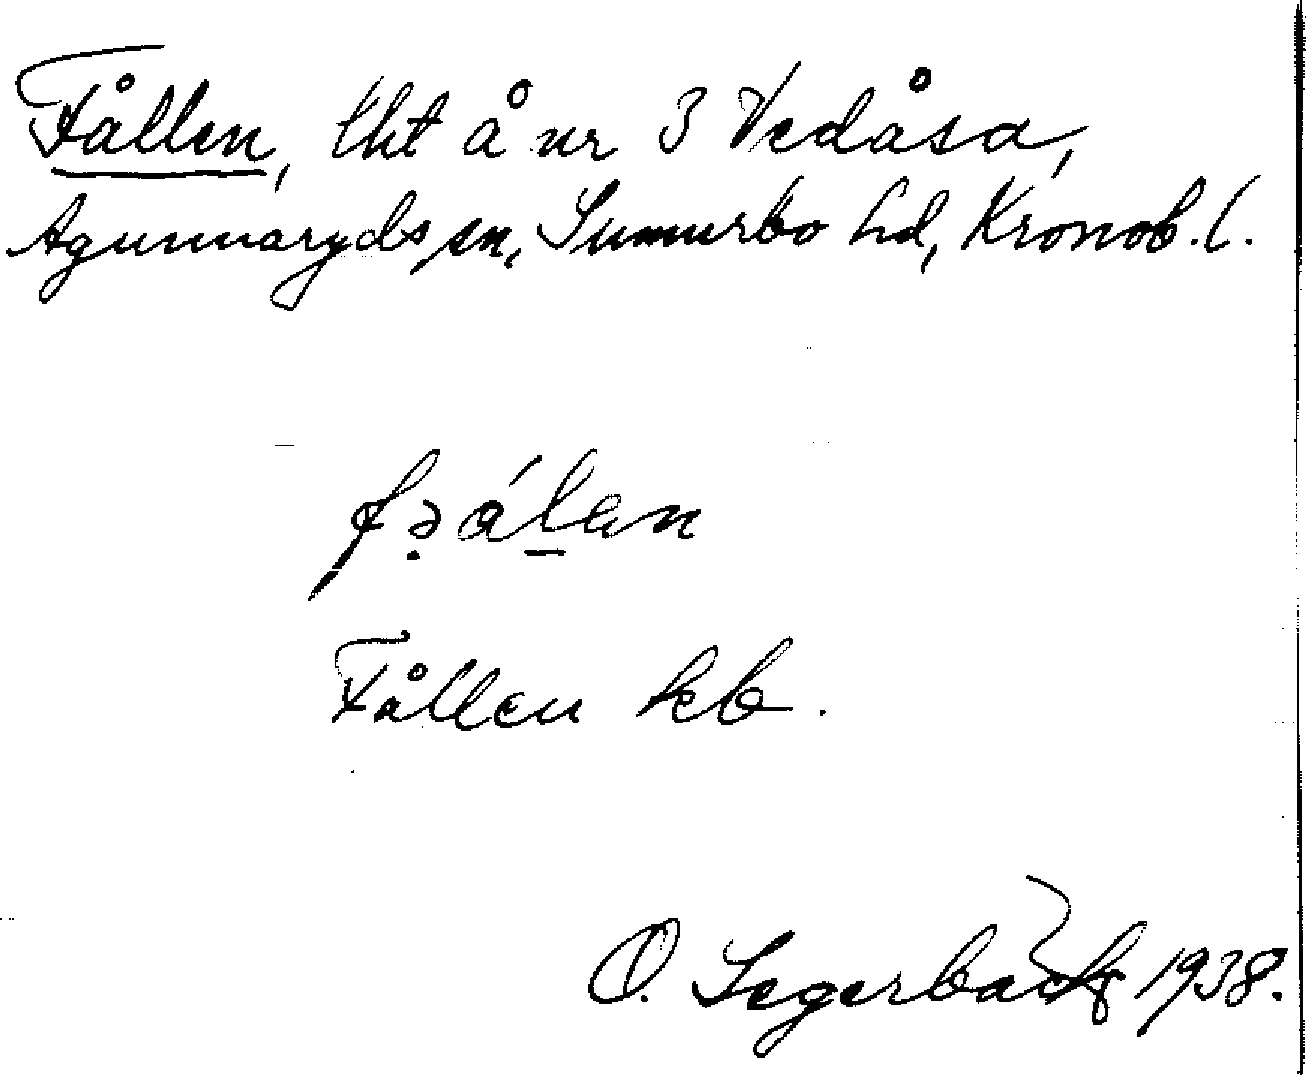 Fållen, lht å nr 3 Vedåsa,
Agunnaryds sn, Sunnerbo hd, Kronob. l.
Fållen kb.
O. Segerbäck 1938.